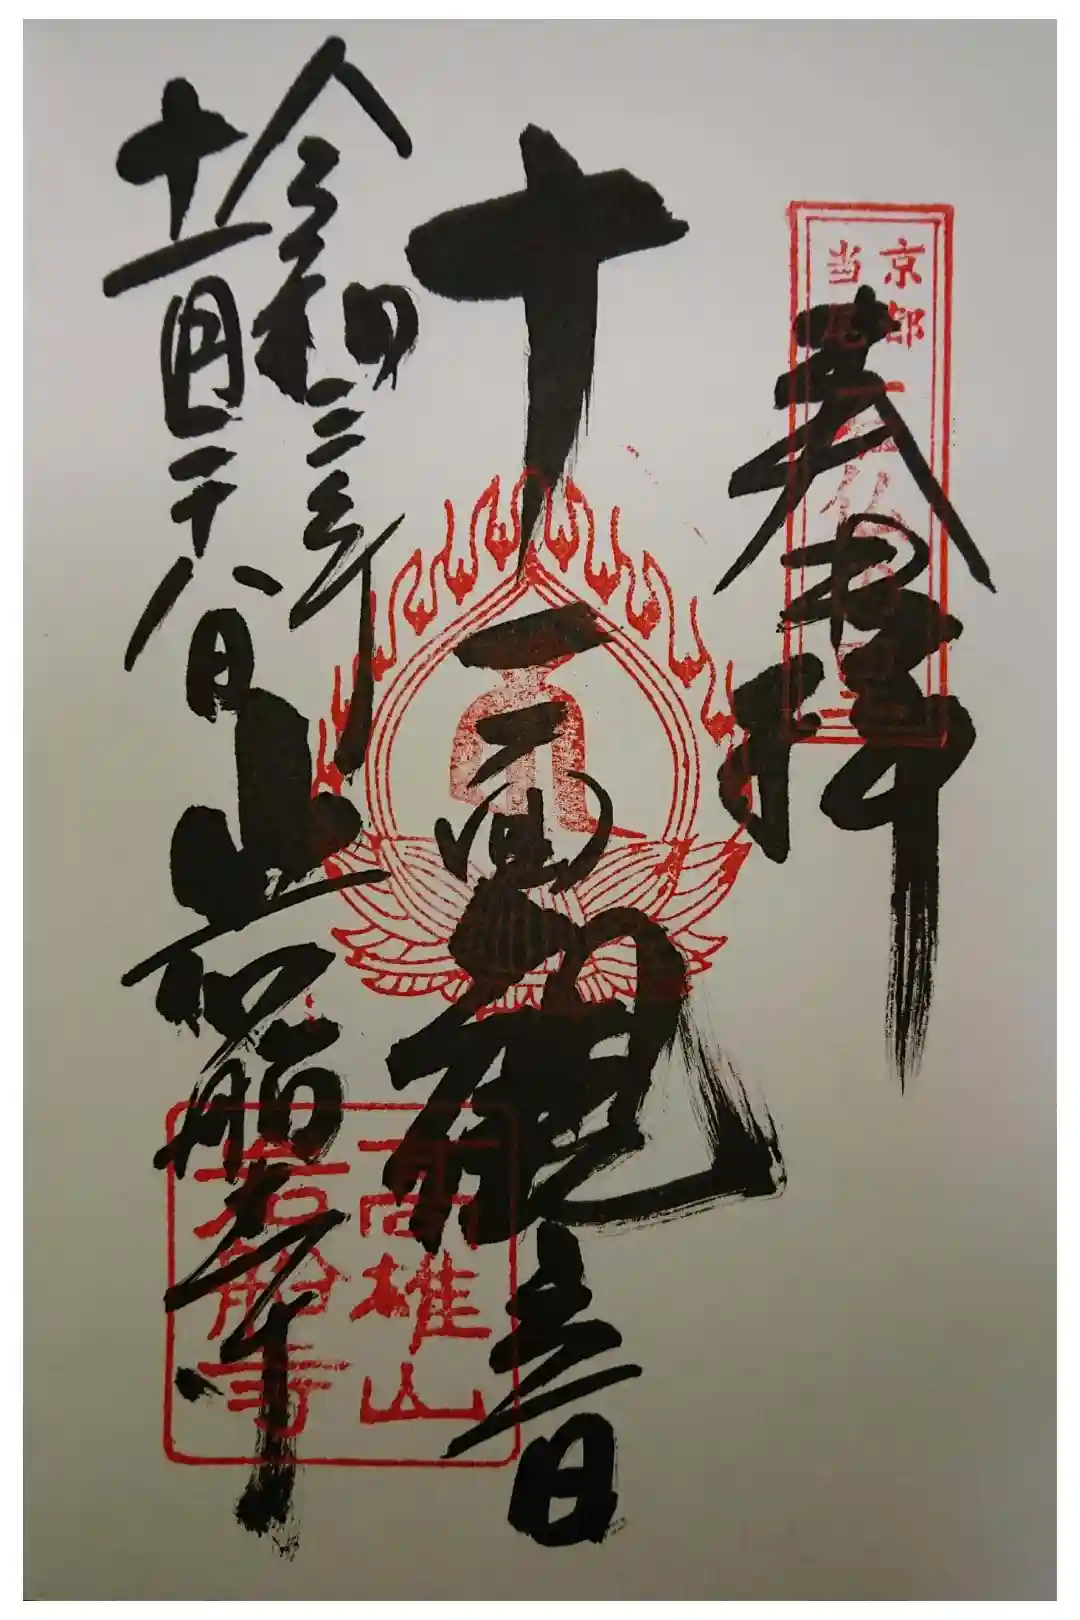 京都
当尾
石仏の里
奉拝
十一面観音
令和三年
十一月二十八日
岩船寺
高雄山
岩船寺